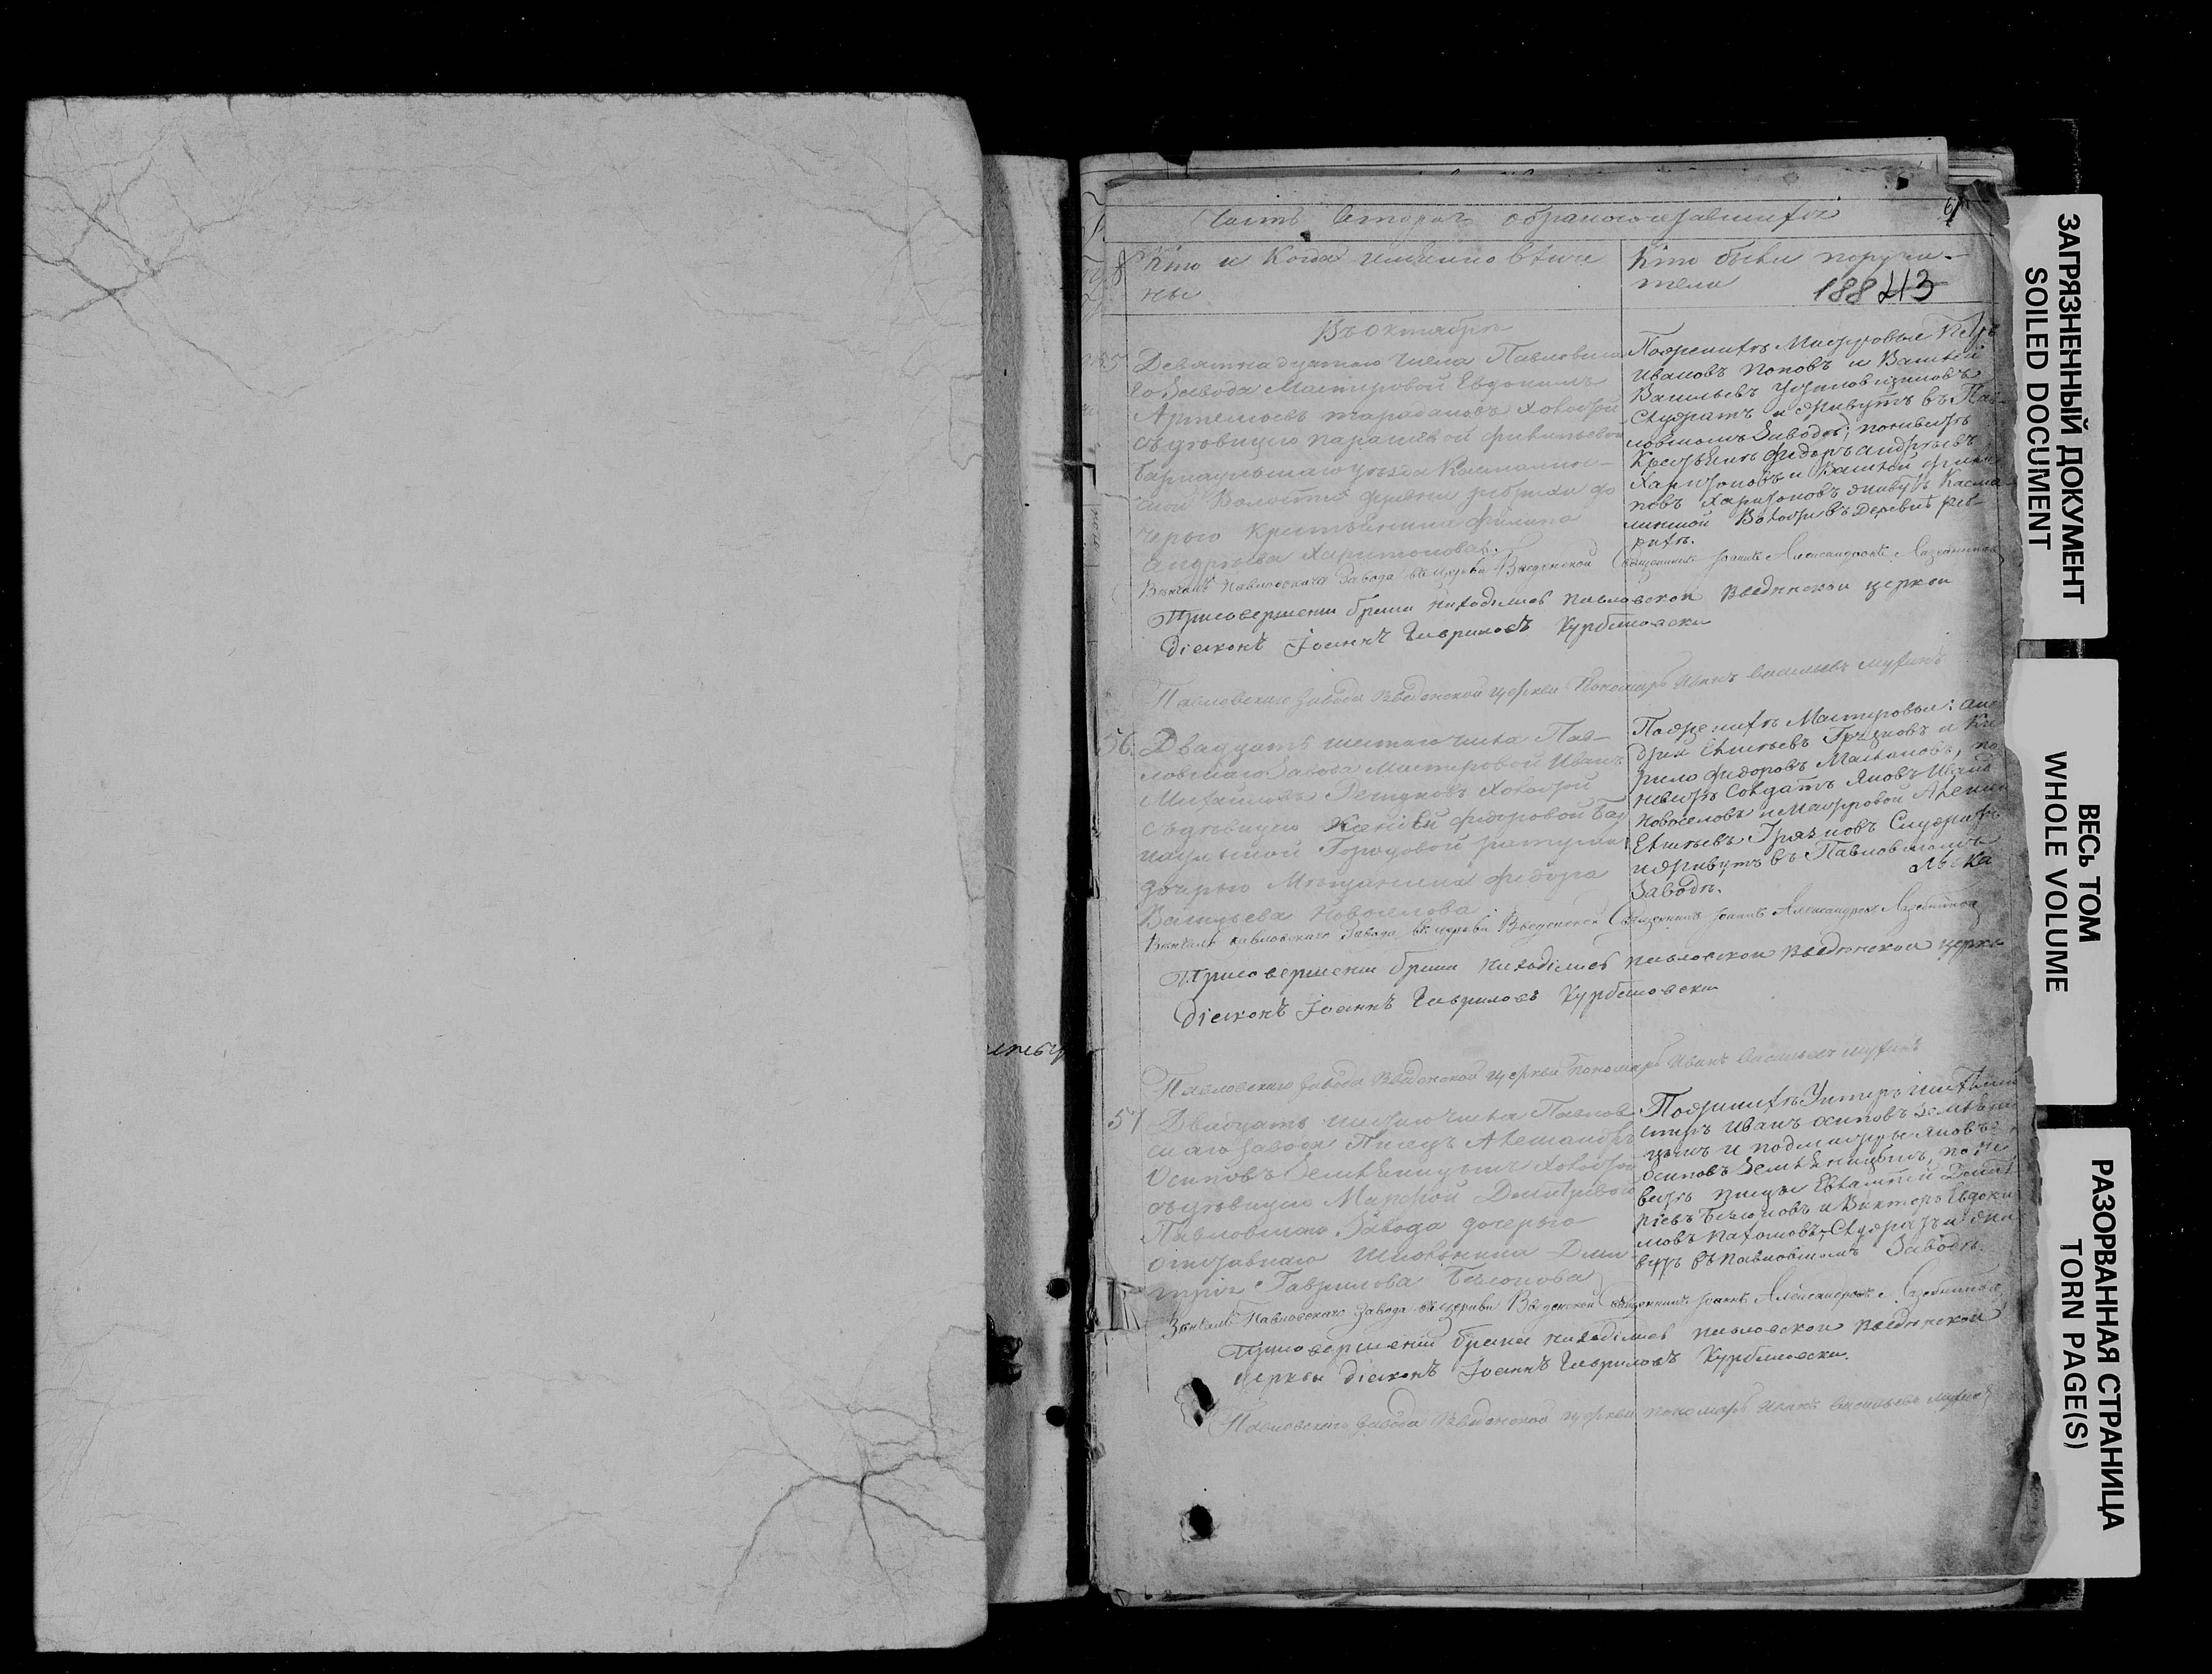 Часть вторая о бракосочетавшихся
Кто и Когда именно венча
ны
Кто были поручи-
тели
188 43
Въ октябре
55
Девятнадцатаго числа Павловска
го Завода Мастеровой Евдокимъ
Артемьевъ холостой
съ девицею Параскевой Филиповой
Барнаульскаго уезда Касмалин-
ской Волости деревни Ребрихи до
черью Крестьянина Филипа
Андреева Харитонова.
По женихе Мастеровые Петръ
Ивановъ Поповъ и Василей
Васильевъ
Служатъ и живутъ въ Пав-
ловскомъ Заводе; по невесте
Крестьяне Федоръ Андреевъ
Харитоновъ и Василей Фили
повъ Харитоновъ живутъ Касма
линской Волости въ Деревне Реб-
рихе.
Венчалъ Павловскаго Завода въ церкви Введенской Священникъ Іоаннъ Александровъ
При совершении брака находился Павловской Введенской церкви
Діяконъ Іоаннъ Гавриловъ Курбановски
Павловскаго Завода Введенской церкви Пономарь Иванъ Васильевъ
56
Двадцать шестаго числа Пав-
ловскаго Завода Мастеровой Иванъ
Михайловъ холостой
съ девицею Ксеніей Федоровой Бар
наульской Городовой ратуши
дочерью Мещанина Федора
Васильева Новоселова
По женихе Мастеровые: Анд
рей Грязновъ и Ки
рило Федоровъ по
невесте Солдатъ Яковъ Иванов
Новоселовъ и Мастеровой Алексей
Грязновъ Служатъ
и живутъ въ Павловскомъ
Заводе.
Венчалъ Павловскаго Завода въ церкви Введенской Священникъ Іоаннъ Александровъ
При совершении брака находился Павловской Введенской церкви
Діяконъ Іоаннъ Гавриловъ Курбановски
Павловскаго Завода Введенской церкви пономарь Иванъ Васильевъ
57
Двадцать шестаго числа Павлов
скаго Завода Писецъ Александръ
Осиповъ Земляницынъ холостой
съ девицею Марфой Дмитревой
Павловскаго Завода дочерью
отставнаго Дми
трія Гаврилова
По женихе Унтеръ
Иванъ Осиповъ Земляни
цынъ и подмастерье Яковъ
Осиповъ Земляницынъ, по не
весте писцы Евлампей Дмит
ріевъ и Викторъ Евдоки
мовъ Пахомовъ, Служатъ и жи
вутъ въ Павловскомъ Заводе.
Венчалъ Павловскаго Завода въ церкви Введенской Священникъ Іоаннъ Александровъ
При совершении брака находился Павловской Введенской
церквы Діяконъ Іоаннъ Гавриловъ Курбановски.
Павловскаго Завода Введенской церкви пономарь Иванъ Васильевъ
ЗАГРЯЗНЕННЫЙ ДОКУМЕНТ
SOILED DOCUMENT
ВЕСЬ ТОМ
WHOLE VOLUME
РАЗОРВАННАЯ СТРАНИЦА
TORN PAGE(S)